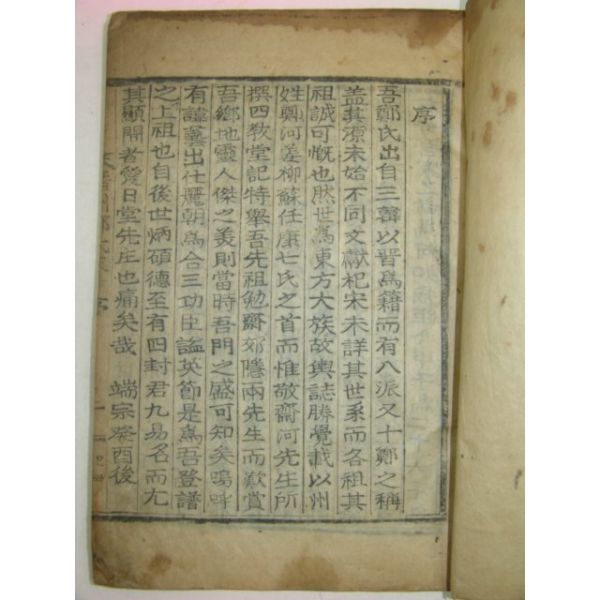 序
吾鄭氏出自三韓以晋爲籍而有八派又十鄭之稱
盖其源未始不同文獻杞宋未詳其世系而各祖其
祖誠可慨也然世爲東方大族故輿誌勝覺載以州
姓鄭河姜柳蘇任康七氏之首而惟敬齋河先生所
撰四教堂記特舉吾先祖勉齋郊隱兩先生而歎賞
吾鄉地靈人傑之美則當時吾門之盛可知矣嗚呼
有諱藝出仕麗朝爲合三功臣謚英節是爲吾登譜
之上祖也自後世炳碩德至有四封君九易名而尢
其顯閈者愛日堂先庄也痛矣哉 端宗癸酉後
序